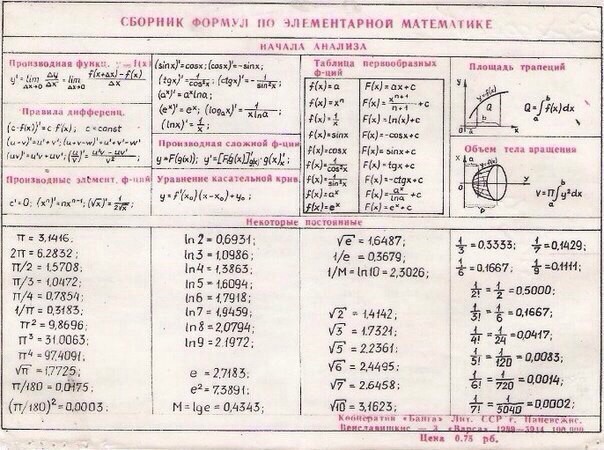 СБОРНИК ФОРМУЛ ПО ЭЛЕМЕНТАРНОЙ МАТЕМАТИКЕ
НАЧАЛА АНАЛИЗА
Производная функц. y=f(x)
y' = lim Δx→0 Δy/Δx = lim Δx→0 (f(x+Δx)-f(x))/Δx
Правила дифференц.
(c·f(x))' = c f'(x); c = const
(u-v)' = u'-v'; (u+v-w)' = u'+v'-w'
(uv)' = u'v+uv'; (u/v)' = (u'v-uv')/v²
Производные элемент. ф-ций
c' = 0; (xⁿ)' = nxⁿ⁻¹; (√x)' = 1/(2√x)
(sinx)' = cosx; (cosx)' = -sinx;
(tgx)' = 1/cos²x; (ctgx)' = -1/sin²x;
(aˣ)' = aˣlna;
(eˣ)' = eˣ; (logₐx)' = 1/(x lna)
(lnx)' = 1/x;
Производная сложной ф-ции
y = F(g(x));
Уравнение касательной крив.
y = f'(x₀)(x-x₀)+y₀;
Таблица первообразных
ф-ций
f(x)=a F(x)=ax+c
f(x)=xⁿ F(x)=xⁿ⁺¹/(n+1)+c
f(x)=1/x F(x)=ln(x)+c
f(x)=sinx F(x)=-cosx+c
f(x)=cosx F(x)=sinx+c
f(x)=1/cos²x F(x)=tgx+c
f(x)=1/sin²x F(x)=-ctgx+c
f(x)=aˣ F(x)=aˣ/lna+c
f(x)=eˣ F(x)=eˣ+c
Площадь трапеций
y
y=f(x)
Q
a b
x
Q=∫ₐᵇf(x)dx
Объем тела вращения
y
V=П∫ₐᵇy²dx
Некоторые постоянные
π = 3,1416.
2π = 6.2832;
π/2 = 1,5708;
π/3 = 1,0472;
π/4 = 0,7854;
1/π = 0,3183;
π² = 9,8696;
π³ = 31.0063;
π⁴ = 97.4091;
√π = 1,7725;
π/180 = 0,0175;
(π/180)² = 0,0003;
ln2 = 0,6931;
ln3 = 1,0986;
ln4 = 1,3863;
ln5 = 1,6094;
ln6 = 1,7918;
ln7 = 1,9459;
ln8 = 2,0794;
ln9 = 2.1972;
e = 2,7183;
e² = 7.3891;
M = lge = 0,4343;
√e = 1,6487;
1/e = 0,3679;
1/M = ln10 = 2,3026;
√2 = 1,4142;
√3 = 1.7321;
√5 = 2,2361;
√6 = 2,4495;
√7 = 2.6458;
√10 = 3,1623;
1/3 = 0.3333; 1/7 = 0,1429;
1/6 = 0.1667; 1/9 = 0,1111;
1/2! = 1/2 = 0,5000;
1/3! = 1/6 = 0,1667;
1/4! = 1/24 = 0,0417;
1/5! = 1/120 = 0,0083;
1/6! = 1/720 = 0,0014;
1/7! = 1/5040 = 0,0002;
Кооператив «Банга» Лит. ССР г. Паневежис.
3 «Варса» 1989
Цена 0.75 рб.